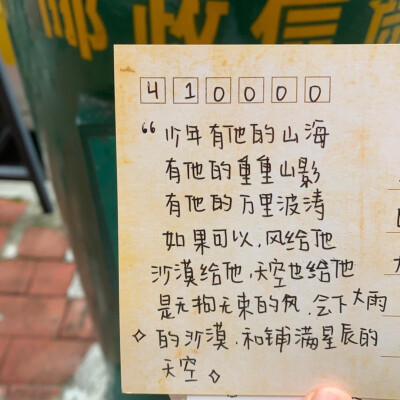 邮政信
410000
“少年有他的山海
有他的重重山影
有他的万里波涛
如果可以,风给他
沙漠给他,天空也给他
是无拘无束的风,会下大雨
的沙漠,和铺满星辰的
天空